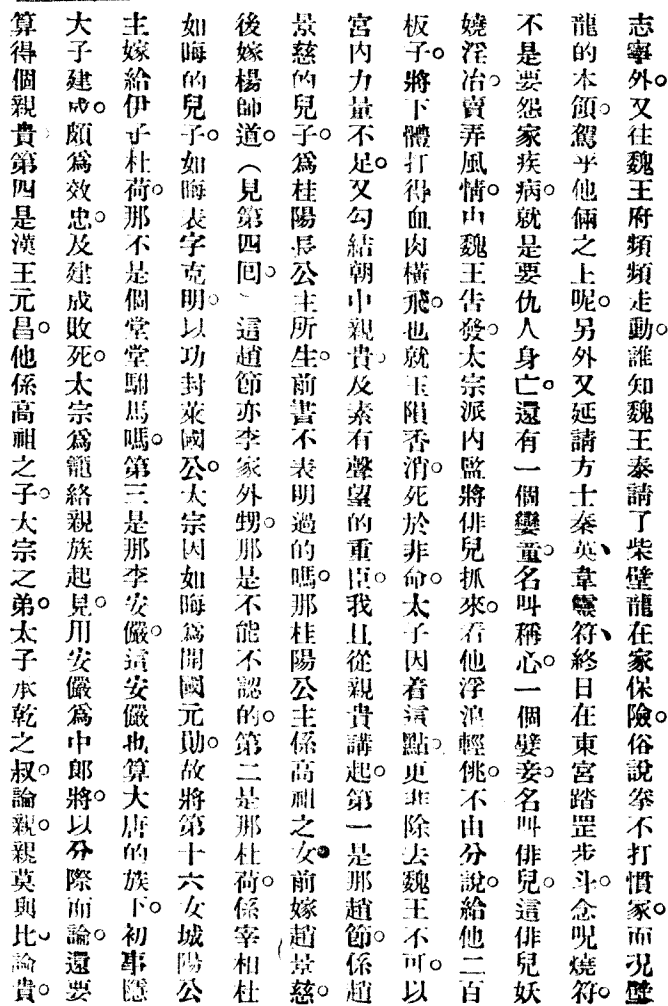 志寧外。又往魏王府頻頻走動。誰知魏王泰請了柴璧龍在家保險。俗說拳不打慣家。而况壁
龍的本領。駕乎他倆之上呢。另外又延請方士秦英、韋靈符、終日在東宮踏罡步斗。念呪燒符。
不是要怨家疾病。就是要仇人身亡。還有一個孌童。名叫稱心。一個嬖妾。名叫俳兒。這俳兒妖
嬈淫冶。賣弄風情。由魏王告發。太宗派內監將俳兒抓來。看他浮浪輕佻。不由分說。給他二百
板子。將下體打得血肉橫飛。也就玉隕香消。死於非命。太子因着這點。更非除去魏王不可。以
宮內力量不足。又勾結朝中親貴。及素有聲望的重臣。我且從親貴講起。第一是那趙節。係趙
景慈的兒子。爲桂陽長公主所生。前書不表明過的嗎。那桂陽公主係高祖之女。前嫁趙景慈。
後嫁楊師道。（見第四回）這趙節亦李家外甥。那是不能不認的。第二是那杜荷。係宰相杜
如晦的兒子。如晦表字克明。以功封萊國公。太宗因如晦爲開國元勛。故將第十六女城陽公
主嫁給伊子杜荷。那不是個堂堂駙馬嗎。第三是那李安儼。這安儼也算大唐的族下。初事隱
大子建成。頗爲效忠。及建成敗死。太宗爲籠絡親族起見。用安儼爲中郎將。以分際而論。還要
算得個親貴。第四是漢王元昌。他係高祖之子。太宗之弟。太子承乾之叔。論親。親莫與比。論貴。